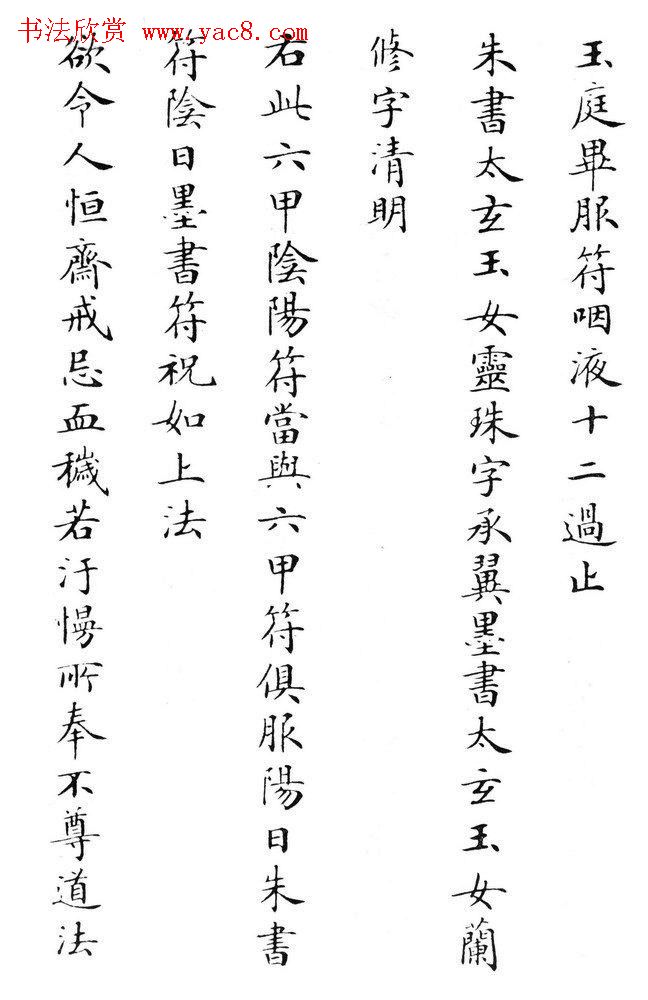 书法欣赏 www.yac8.com
玉庭畢服符咽液十二過止
朱書太玄玉女靈珠字承翼墨書太玄玉女蘭
修字清明
右此六甲陰陽符當與六甲符俱服陽日朱書
符陰日墨書符祝如上法
欲令人恒齋戒忌血穢若汙慢所奉不尊道法